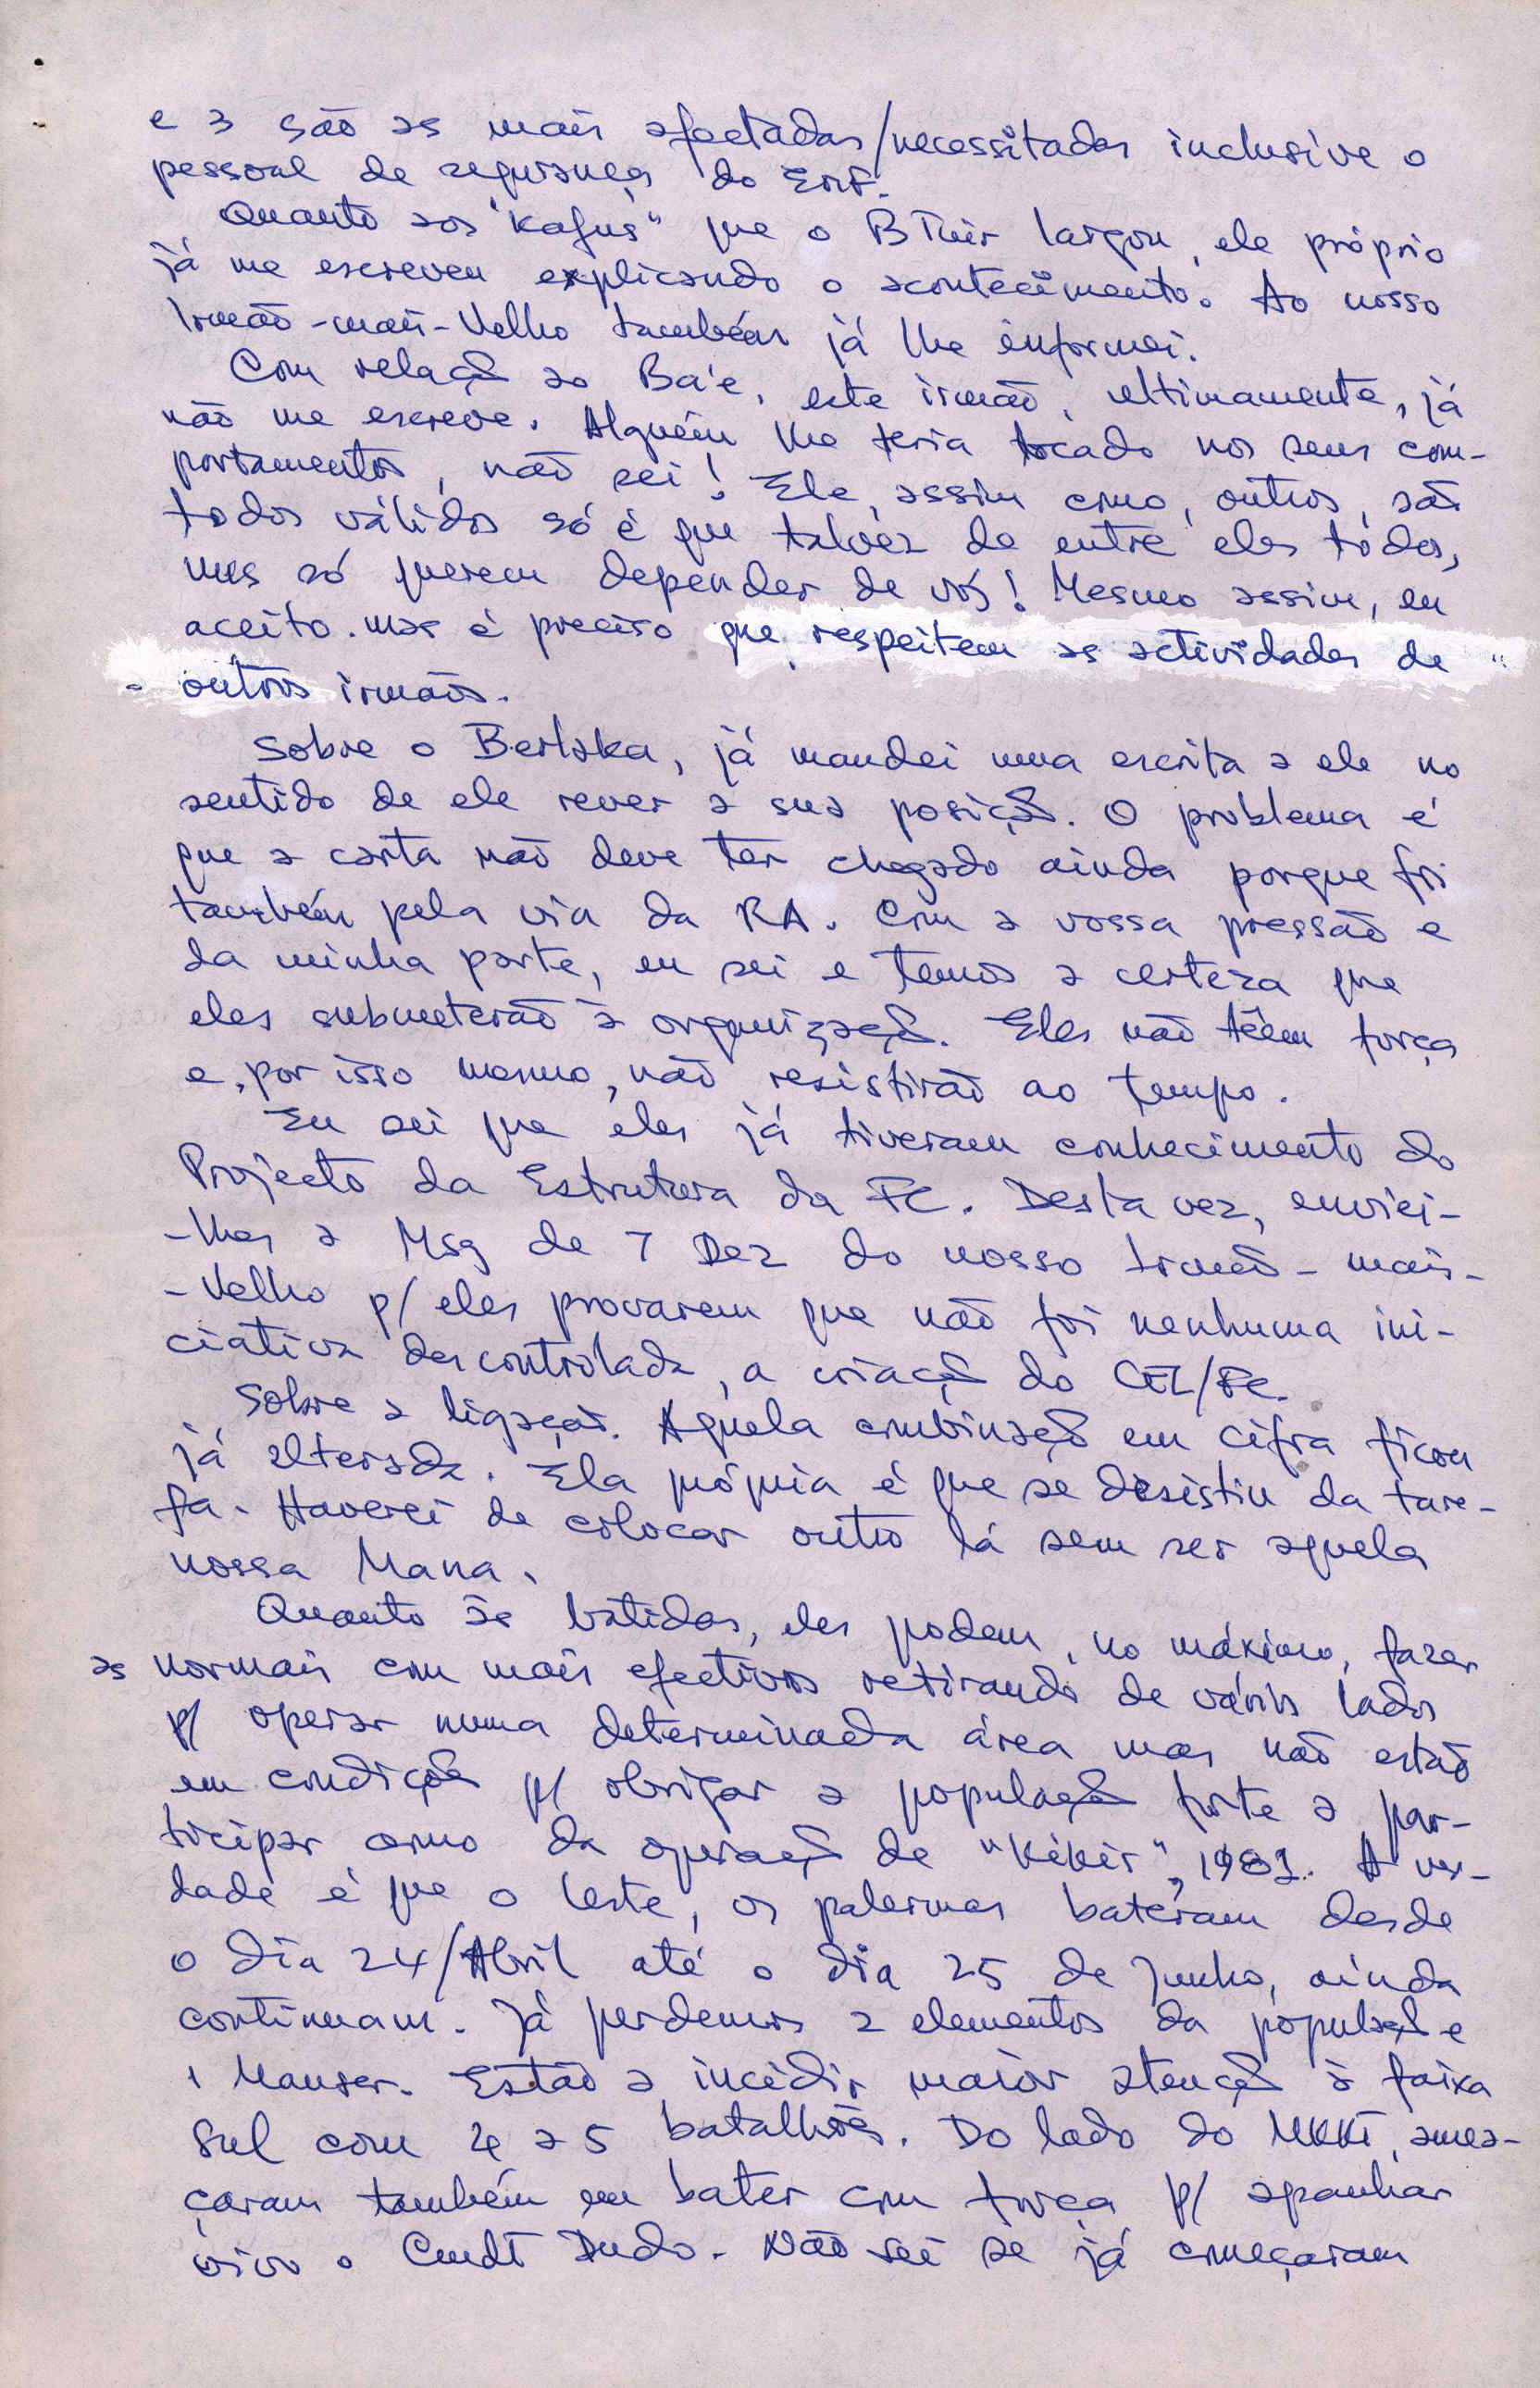 e 3 são as mais afectadas/necessitadas inclusive o
pessoal de segurança do EMF.
Quanto aos "Kafus" que o BThir largou, ele próprio
já me escreveu explicando o acontecimento. Ao nosso
Irmão-mais-Velho também já lhe informei.
Com relação ao Ba'e, este irmão, ultimamente, já
não me escreve. Alguém lhe teria tocado nos seus com-
portamentos, não sei! Ele, assim como, outros, são
todos válidos só é que talvez de entre eles todos,
uns só querem depender de vós! Mesmo assim, eu
aceito. Mas é preciso que respeitem as actividades de
outros irmãos.
Sobre o Berloka, já mandei uma escrita a ele no
sentido de ele rever a sua posição. O problema é
que a carta não deve ter chegado ainda porque foi
também pela via da RA. Com a vossa pressão e
da minha parte, eu sei e temos a certeza que
eles submeterão à organização. Eles não têem força
e, por isso mesmo, não resistirão ao tempo.
Eu sei que eles já tiveram conhecimento do
Projecto da Estrutura da FC. Desta vez, enviei-
-lhes a Msg de 7 Dez do nosso Irmão-mais-
-Velho p/ eles provarem que não foi nenhuma ini-
ciativa descontrolada, a criação do CEL/FC.
Sobre a ligação. Aquela combinação em cifra ficou
já alterada. Ela própria é que se desistiu da tare-
fa. Haverei de colocar outro lá sem ser aquela
nossa Mana.
Quanto às batidas, eles podem, no máximo, fazer
as normais com mais efectivos retirando de vários lados
p/ operar numa determinada área mas não estão
em condições p/ obrigar a população forte a par-
ticipar como da operação de "Kikir", 1981. A ver-
dade é que o leste, os palermas bateram desde
o dia 24/Abril até o dia 25 de Junho, ainda
continuam. Já perdemos 2 elementos da população e
1 Mauser. Estão a incidir maior atenção à faixa
Sul com 4 a 5 batalhões. Do lado do MKKT, amea-
çaram também em bater com força p/ apanhar
vivo o Cmdt Dudo. Não sei se já começaram